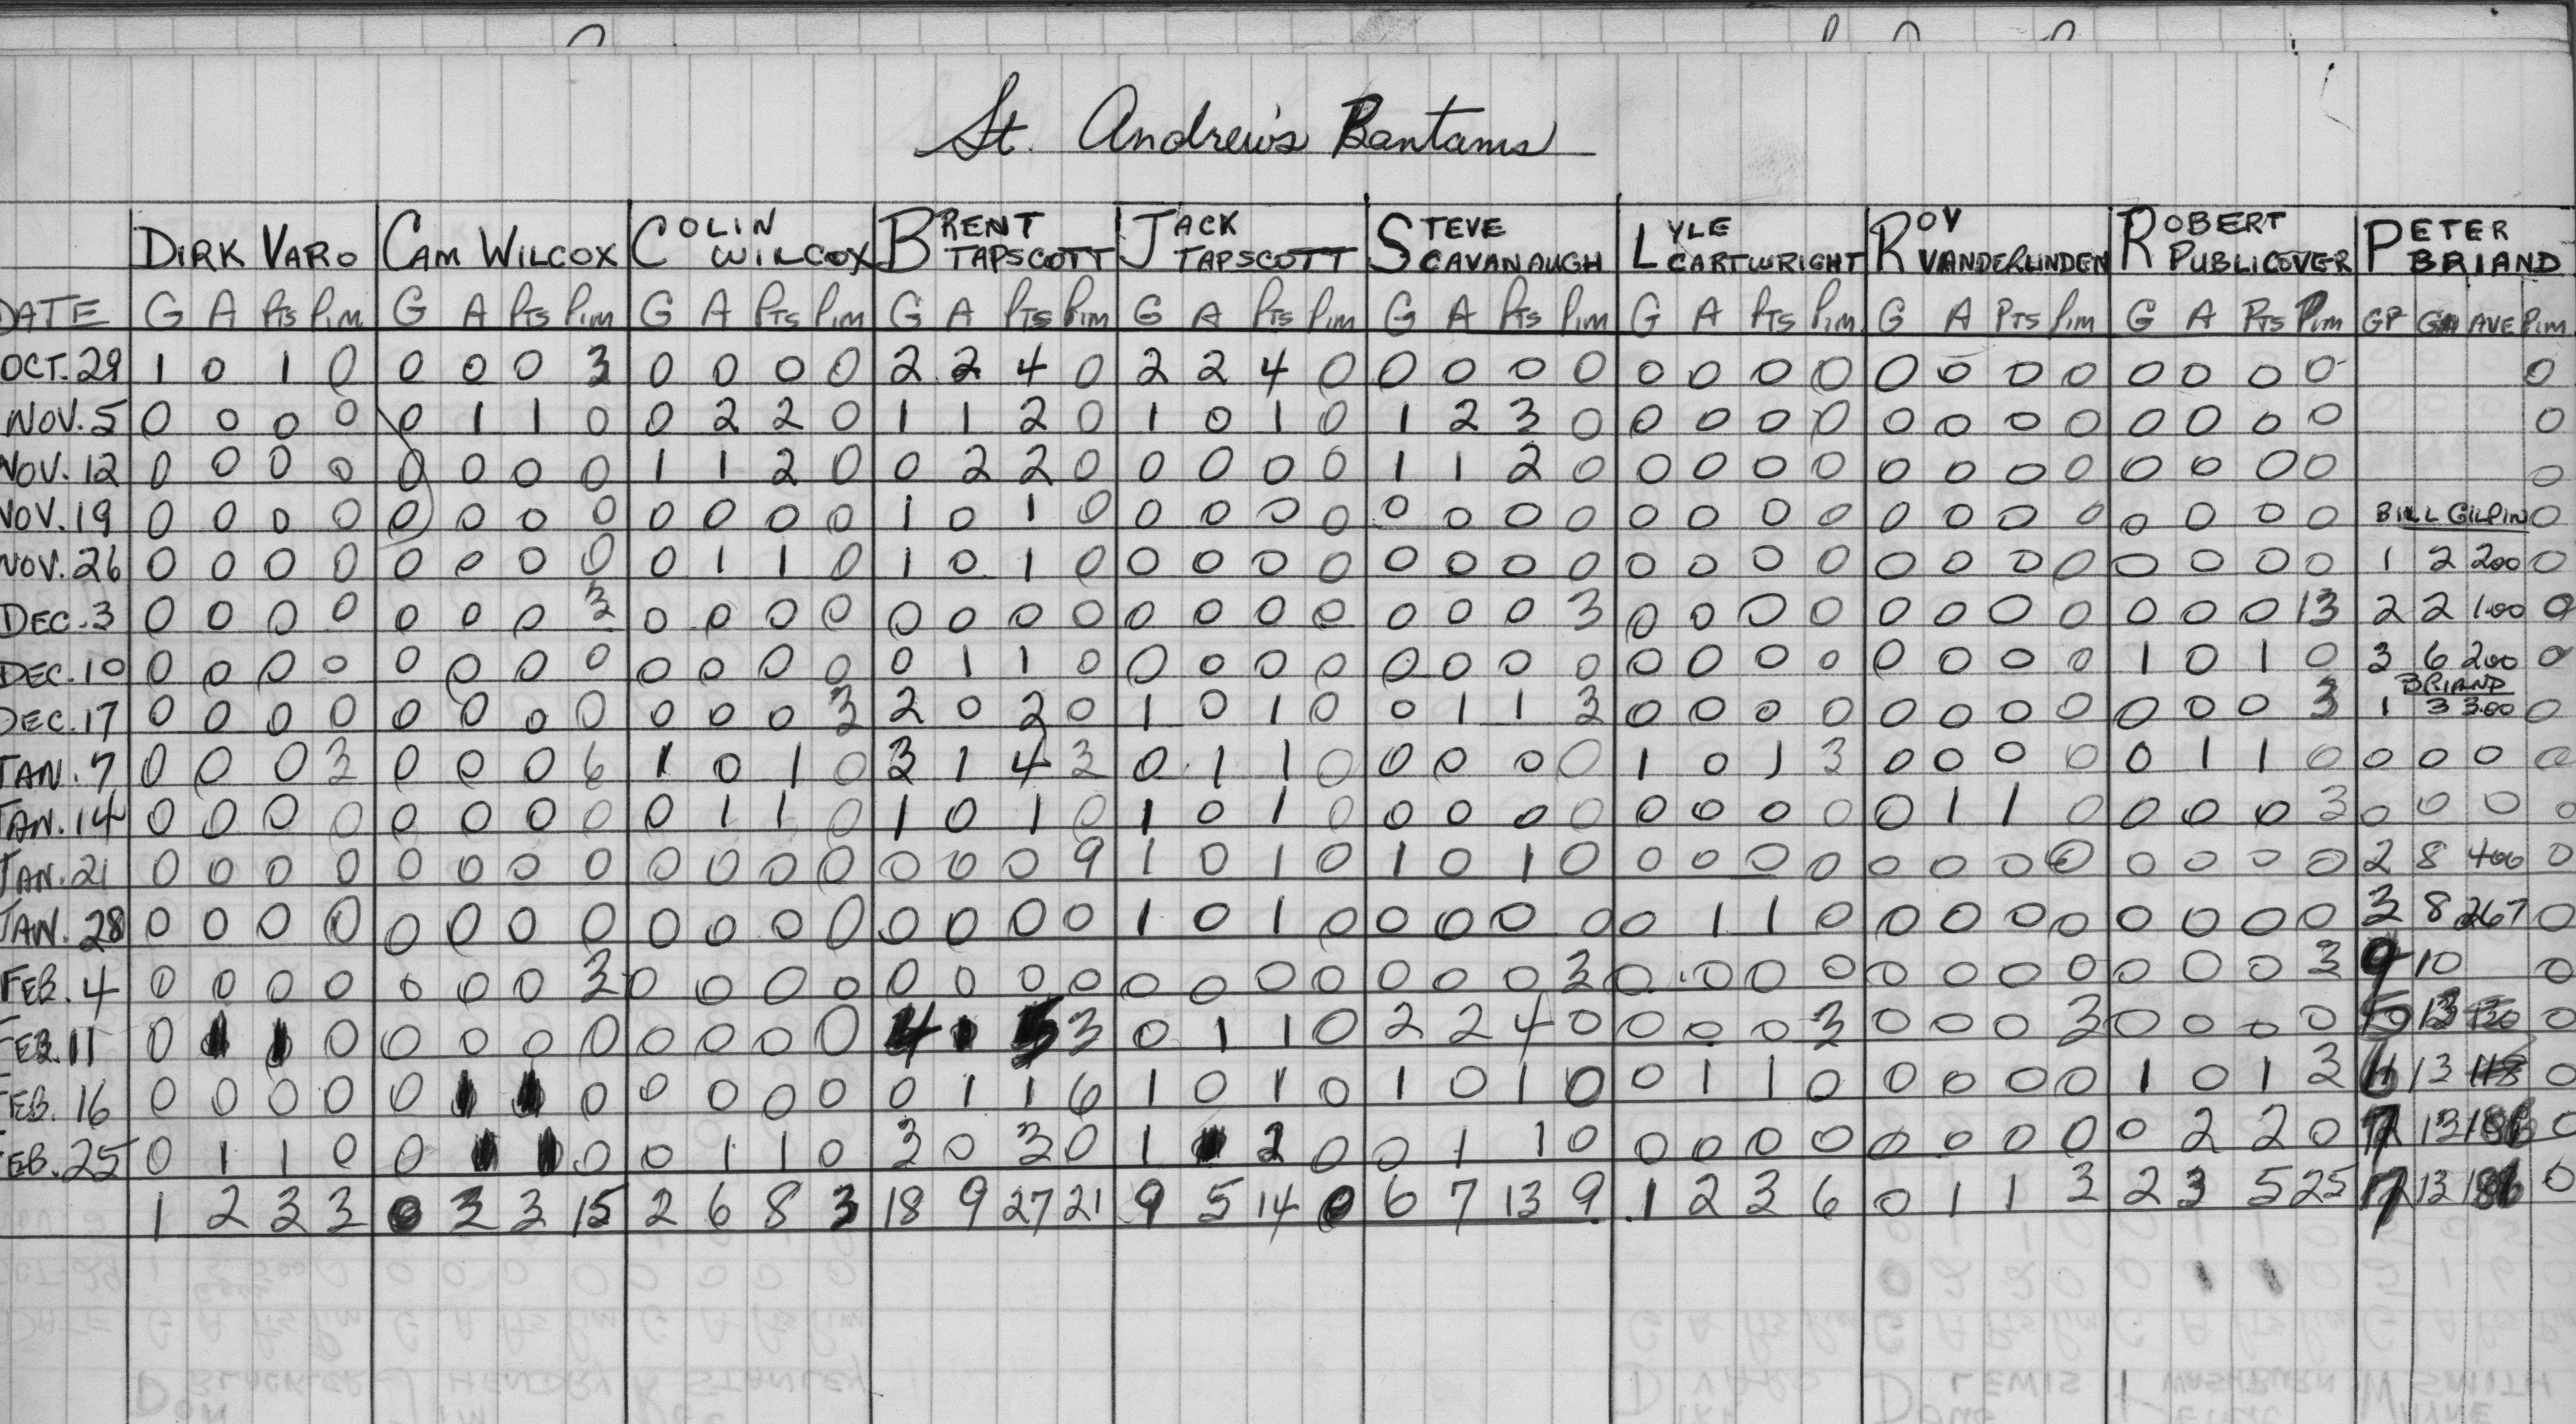 St. Andrew's Bantams
DIRK VARO CAM WILCOX COLIN WILCOX BRENT TAPSCOTT JACK TAPSCOTT STEVE CAVANAUGH LYLE CARTWRIGHT ROY VANDERLINDEN ROBERT PUBLICOVER PETER BRIAND
DATE G A Pts Pim G A Pts Pim G A Pts Pim G A Pts Pim G A Pts Pim G A Pts Pim G A Pts Pim G A PTS Pim G A Pts Pim GP GA AVE Pim
OCT. 29 1 0 1 0 0 0 0 3 0 0 0 0 2 2 4 0 2 2 4 0 0 0 0 0 0 0 0 0 0 0 0 0 0 0 0 0 0
NOV. 5 0 0 0 0 0 1 1 0 0 2 2 0 1 1 2 0 1 0 1 0 1 2 3 0 0 0 0 0 0 0 0 0 0 0 0 0 0
NOV. 12 0 0 0 0 0 0 0 0 1 1 2 0 0 2 2 0 0 0 0 0 1 1 2 0 0 0 0 0 0 0 0 0 0 0 0 0 0
NOV. 19 0 0 0 0 0 0 0 0 0 0 0 0 1 0 1 0 0 0 0 0 0 0 0 0 0 0 0 0 0 0 0 0 0 0 0 0 BILL GILPIN 0
NOV. 26 0 0 0 0 0 0 0 0 0 1 1 0 1 0 1 0 0 0 0 0 0 0 0 0 0 0 0 0 0 0 0 0 0 0 0 0 1 2 200 0
DEC. 3 0 0 0 0 0 0 0 3 0 0 0 0 0 0 0 0 0 0 0 0 0 0 0 3 0 0 0 0 0 0 0 0 0 0 0 13 2 2 1.00 0
DEC. 10 0 0 0 0 0 0 0 0 0 0 0 0 0 1 1 0 0 0 0 0 0 0 0 0 0 0 0 0 0 0 0 0 1 0 1 0 3 6 200 0
BRIAND
DEC. 17 0 0 0 0 0 0 0 0 0 0 0 3 2 0 2 0 1 0 1 0 0 1 1 3 0 0 0 0 0 0 0 0 0 0 0 3 1 3 3.00 0
JAN. 7 0 0 0 3 0 0 0 6 1 0 1 0 3 1 4 3 0 1 1 0 0 0 0 0 1 0 1 3 0 0 0 0 0 1 1 0 0 0 0 0
JAN. 14 0 0 0 0 0 0 0 0 0 1 1 0 1 0 1 0 1 0 1 0 0 0 0 0 0 0 0 0 0 1 1 0 0 0 0 3 0 0 0 0
JAN. 21 0 0 0 0 0 0 0 0 0 0 0 0 0 0 0 9 1 0 1 0 1 0 1 0 0 0 0 0 0 0 0 0 0 0 0 0 2 8 400 0
JAN. 28 0 0 0 0 0 0 0 0 0 0 0 0 0 0 0 0 1 0 1 0 0 0 0 0 0 1 1 0 0 0 0 0 0 0 0 0 3 8 267 0
FEB. 4 0 0 0 0 0 0 0 3 0 0 0 0 0 0 0 0 0 0 0 0 0 0 0 3 0 0 0 0 0 0 0 0 0 0 0 3 10 0
FEB. 11 0 1 1 0 0 0 0 0 0 0 0 0 4 1 5 3 0 1 1 0 2 2 4 0 0 0 0 3 0 0 0 3 0 0 0 0 5 13 0
FEB. 16 0 0 0 0 0 1 1 0 0 0 0 0 0 1 1 6 1 0 1 0 1 0 1 0 0 1 1 0 0 0 0 0 1 0 1 3 6 13 0
FEB. 25 0 1 1 0 0 1 1 0 0 1 1 0 3 0 3 0 1 1 2 0 0 1 1 0 0 0 0 0 0 0 0 0 0 2 2 0 7 13 0
1 2 3 3 0 3 3 15 2 6 8 3 18 9 27 21 9 5 14 0 6 7 13 9 1 2 3 6 0 1 1 3 2 3 5 25 7 13 0